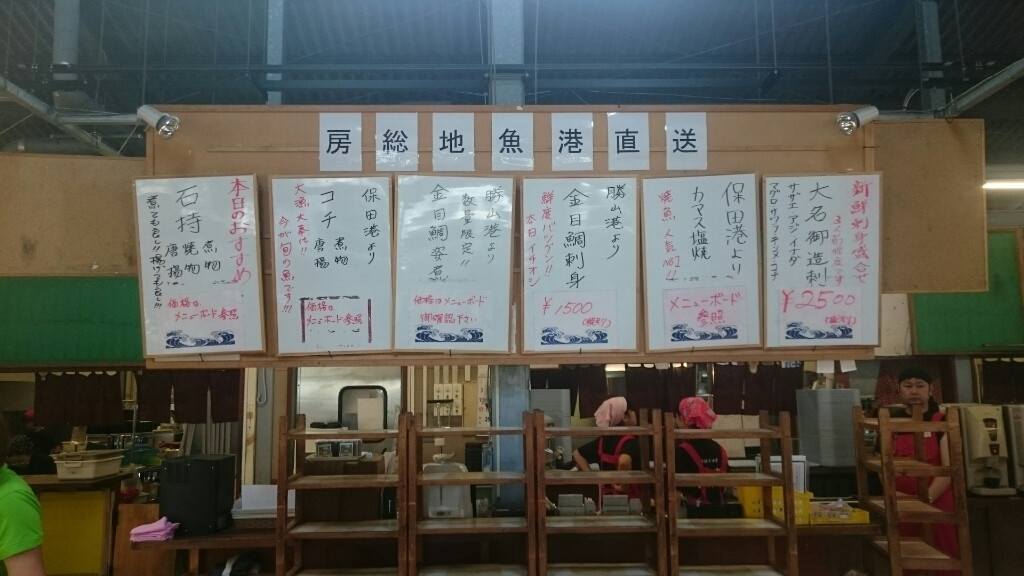 房総地魚港直送
新鮮刺身盛合せ
3人前程度です
大名御造刺
サザエ アジ イナダ
マグロ サワラ チヌ メコチ
¥2500
(税別)
保田港より
カマス塩焼
焼魚人気No.1!!
メニューボード
参照
勝山港より
金目鯛刺身
鮮度バツグン!!
本日イチオシ
¥1500
(税別)
勝山港より
数量限定!!
金目鯛姿煮
価格はメニューボード
御確認下さい
保田港より
コチ
煮物
唐揚
大漁大奉仕!!
今が旬の魚です!!!
価格は
メニューボード参照
本日のおすすめ
石持
煮物
焼物
唐揚
煮ても良し!!揚げても良し!!!
価格は
メニューボード参照